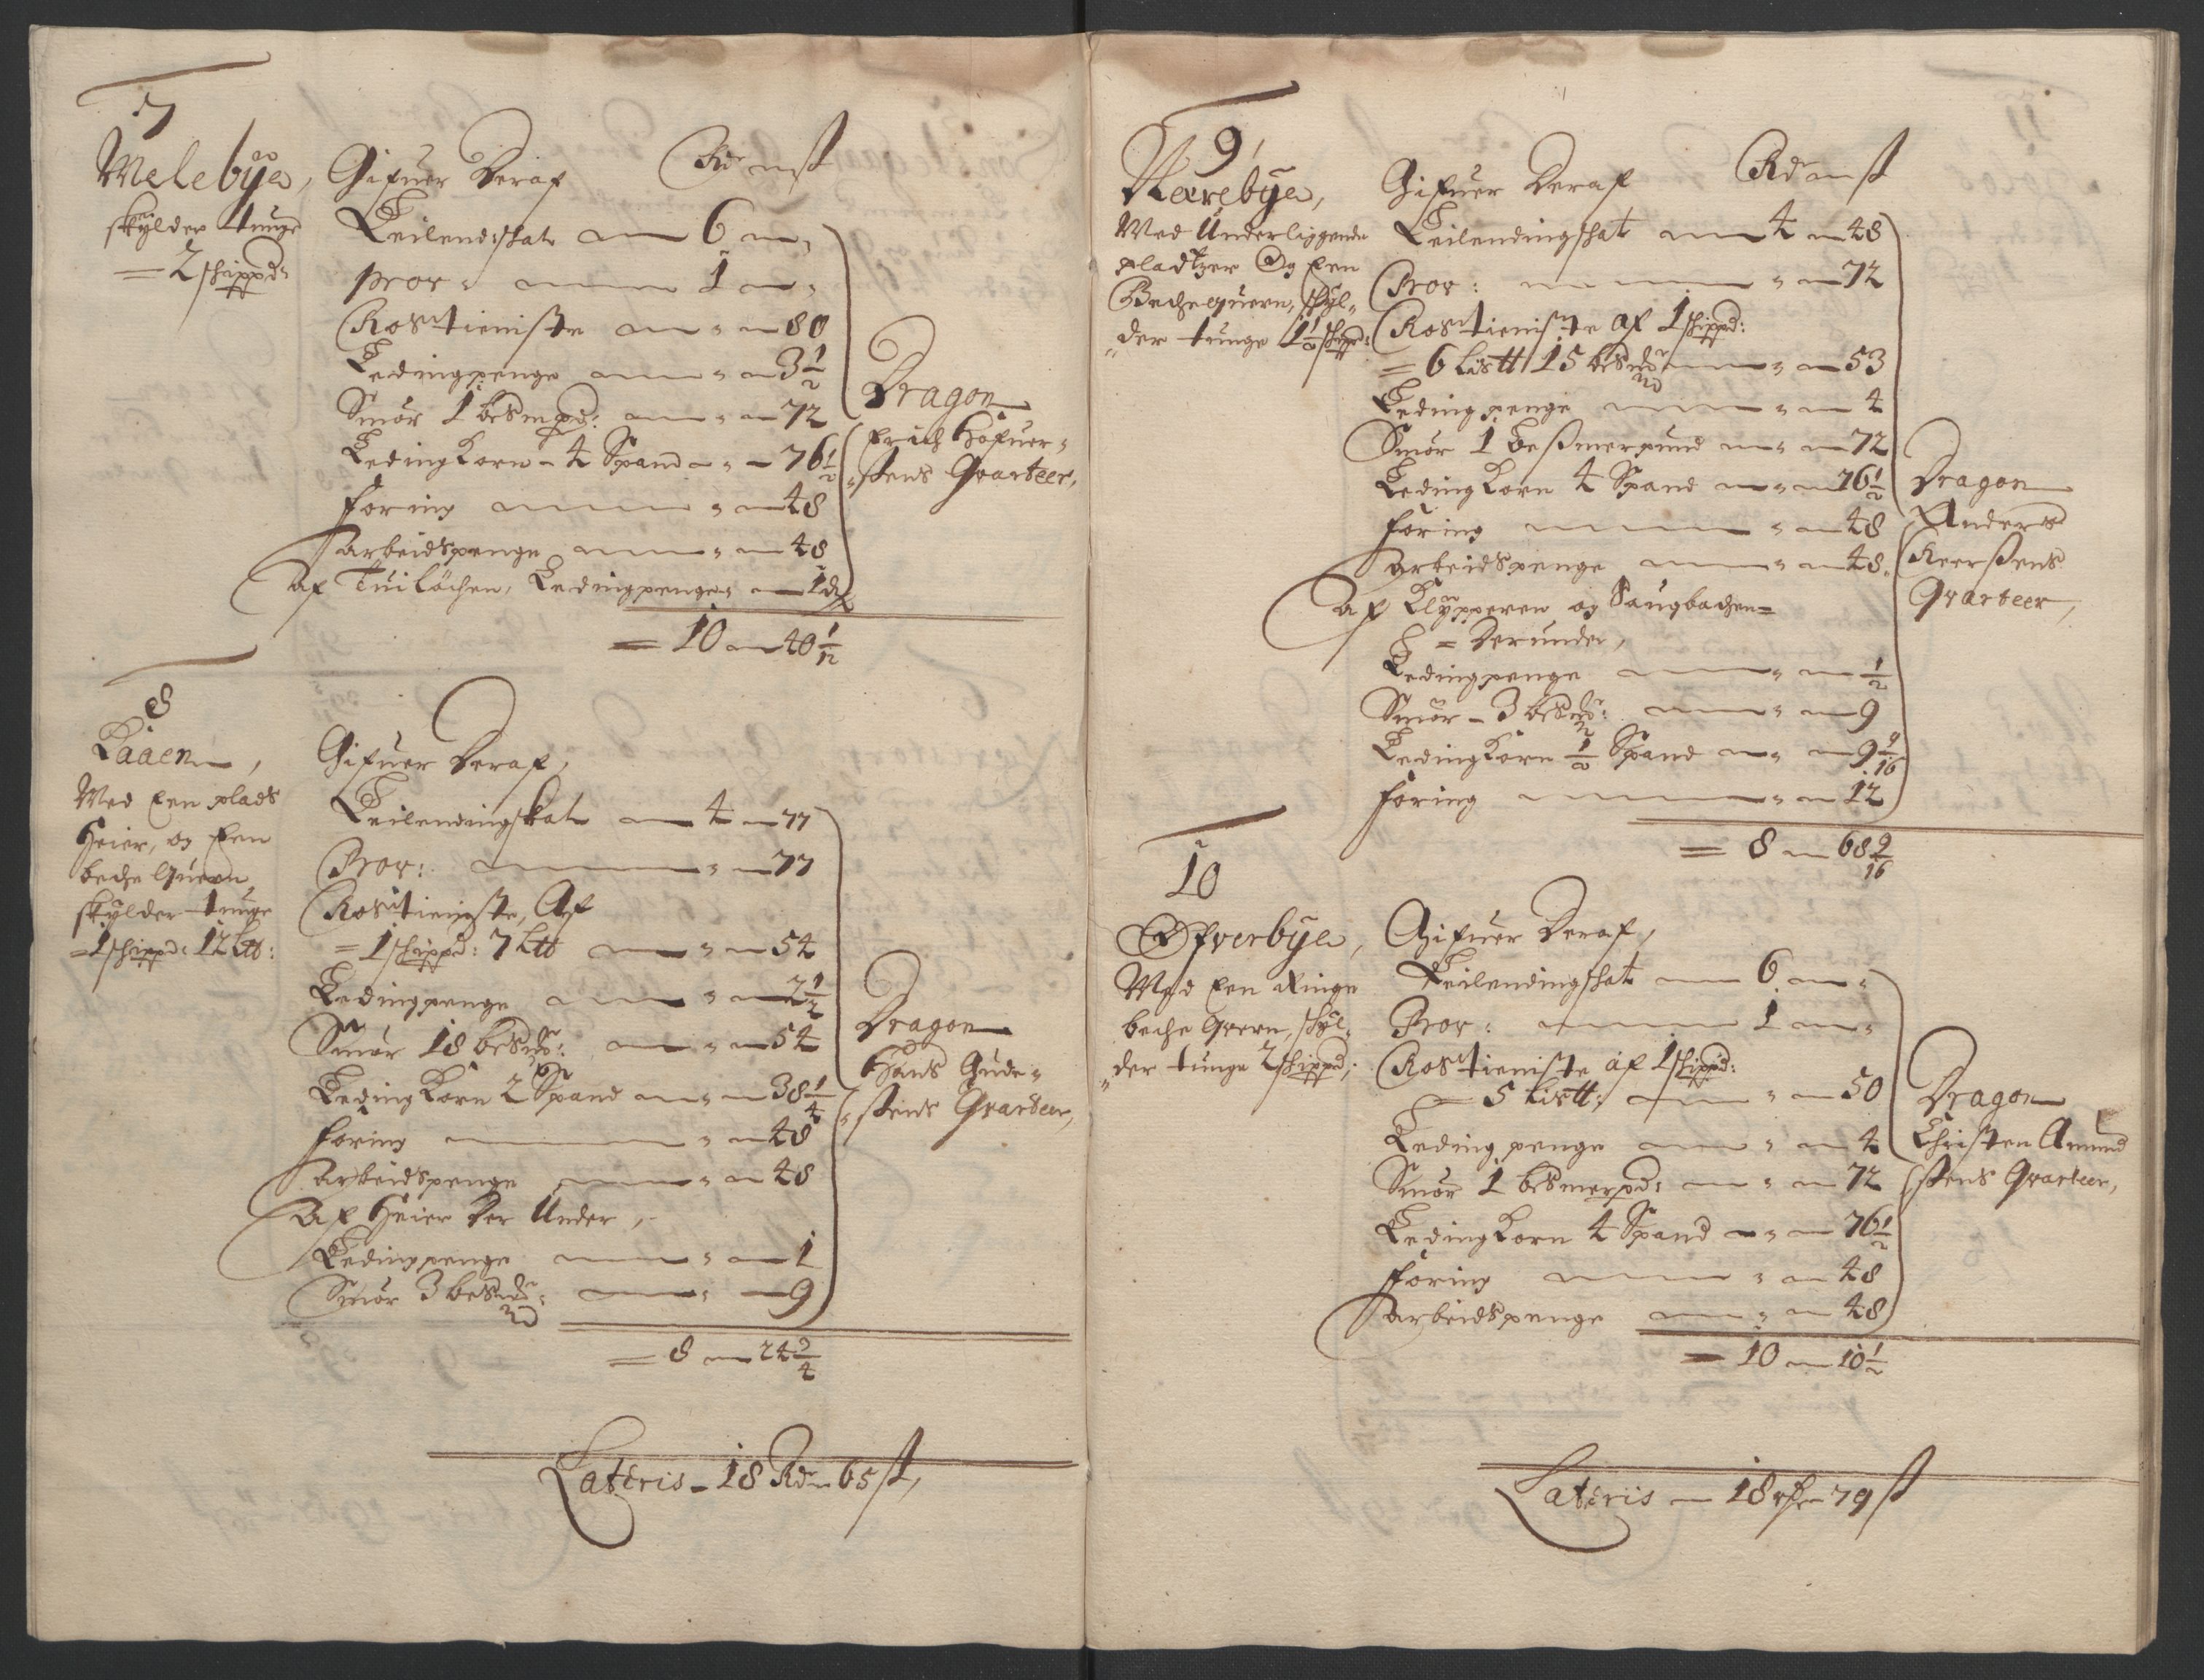 7
Melebye,
skylder tunge
= 2 schippd:
Gifuer Deraf Rd ß
Leilend:schat 6 "
Prov: 1 "
Rostieniste " 80
Ledingpenge " 3 1/2
Smör 1 besmpd: " 72
Leding Korn - 4 Spand " 76 1/2
foring " 48
arbeidspenge " 48
Af Tuiløchen, Ledingpenge " 1
= 10 40 1/12
Dragon
Erich Hofuer-
stens Qvarteer,
8
Kaaen,
Med Een plads
Heier, og Een
beche Quern
skylder tunge
= 1 schippd: 12 Ltt:
Gifuer Deraf,
Leilendingskat 4 77
Prov: " 77
Rostieniste, Af
= 1 schippd: 7 Ltt " 54
Ledingpenge " 2 1/2
Smör 18 besmr: " 54
Leding Korn 2 Spand " 38 1/4
foring " 48
arbeidspenge " 48
Af Heier Der Under,
Ledingpenge " 1
Smör 3 besmr: " 9
= 8 24 3/4
Dragon
Hans Gude-
stens Qvarteer,
Lateris - 18 Rd 65 ß,
9
Nærebye,
Med Underliggende
pladtzer Og Een
Bechequern, skyl-
der tunge 1 1/2 schipd:
Gifuer Deraf Rd ß
Leilendingschat 4 48
Prov: " 72
Rostieniste af 1 schippd:
= 6 Listt 15 besmr " 53
Ledingpenge " 4
Smör 1 Beßmerpund " 72
Leding Korn 4 Spand " 76 1/2
foring " 48
arbeidspenge " 48
Af Klypperen og Saugbachen
= Derunder,
Ledingpenge " 1/2
Smör - 3 besmr: " 9
Leding Korn 1/2 Spand " 9 9/16
foring " 12
= 8 68 9/16
Dragon
Anders
Reerßens
Qvarteer,
10
Øfverbye,
Med Een Ringe
beche Qvern, skyl-
der tunge 2 schippd;
Gifuer Deraf,
Leilendingschat 6 "
Prov: 1 "
Rostieniste af 1 schippd:
= 5 Listt: " 50
Leding penge " 4
Smör 1 besmerpd: " 72
Leding Korn 4 Spand " 76 1/2
foring " 48
arbeidspenge " 48
= 10 10 1/2
Dragon
Christen Amund
stens Qvarteer,
Lateris 18 79 ß